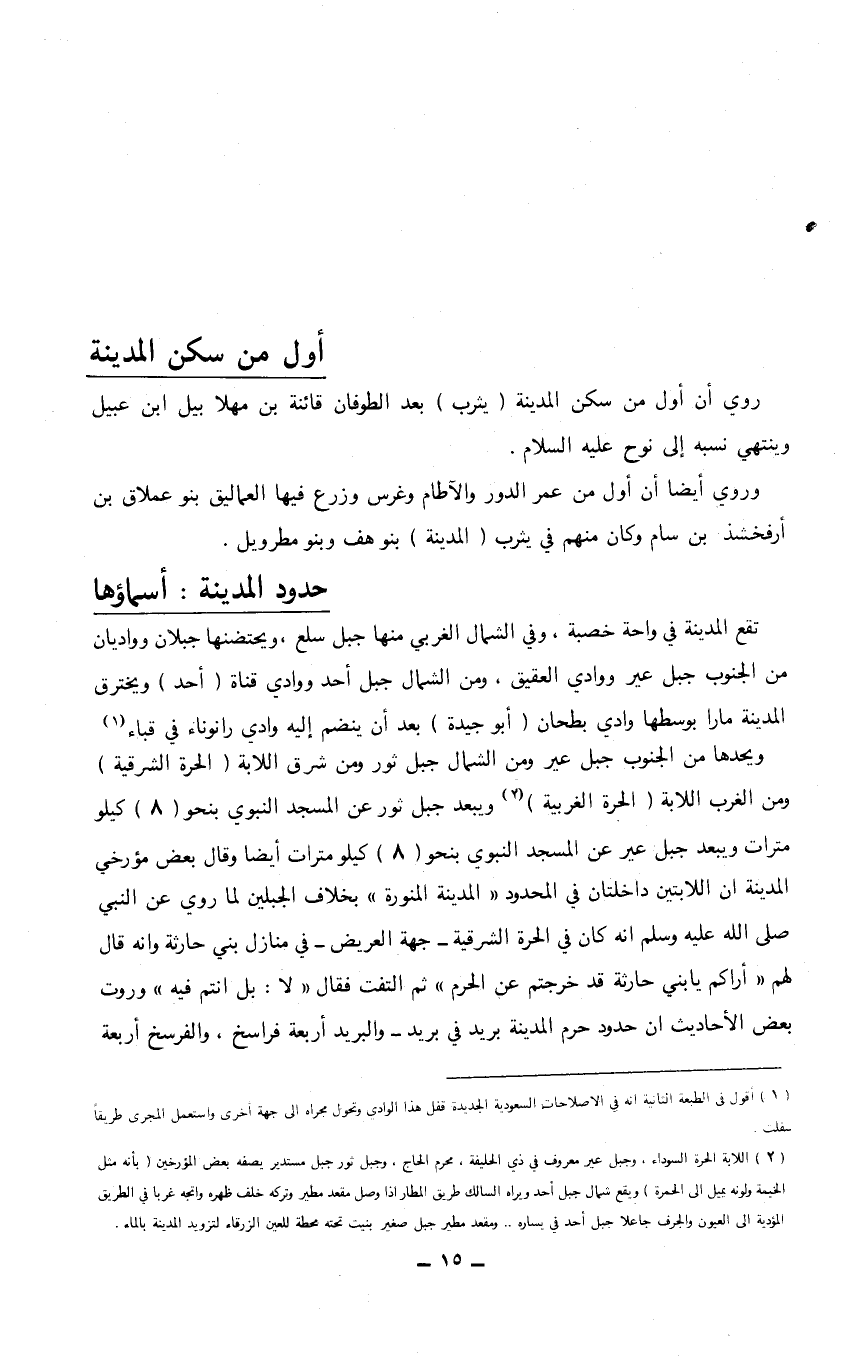 أول من سكن المدينة
روي أن أول من سكن المدينة ( يثرب ) بعد الطوفان قائنة بن مهلا بيل ابن عبيل
وينتهي نسبه إلى نوح عليه السلام .
وروي أيضا أن أول من عمر الدور والآطام وغرس وزرع فيها العماليق بنو عملاق بن
أرفخشذ بن سام وكان منهم في يثرب ( المدينة ) بنو هف وبنو مطرويل .
حدود المدينة : أسماؤها
تقع المدينة في واحة خصبة ، وفي الشمال الغربي منها جبل سلع ،ويحتضنها جبلان وواديان
من الجنوب جبل عير ووادي العقيق ، ومن الشمال جبل أحد ووادي قناة ( أحد ) ويخترق
المدينة مارا بوسطها وادي بطحان ( أبو جيدة ) بعد أن ينضم إليه وادي رانوناء في قباء(١)
ويحدها من الجنوب جبل عير ومن الشمال جبل ثور ومن شرق اللابة ( الحرة الشرقية )
ومن الغرب اللابة ( الحرة الغربية )(٢) ويبعد جبل ثور عن المسجد النبوي بنحو ( ٨ ) كيلو
مترات ويبعد جبل عير عن المسجد النبوي بنحو ( ٨ ) كيلو مترات أيضا وقال بعض مؤرخي
المدينة ان اللابتين داخلتان في المحدود « المدينة المنورة » بخلاف الجبلين لما روي عن النبي
صلى الله عليه وسلم انه كان في الحرة الشرقية ـ جهة العريض ـ في منازل بني حارثة وانه قال
لهم « أراكم يابني حارثة قد خرجتم عن الحرم » ثم التفت فقال « لا : بل انتم فيه » وروت
بعض الأحاديث ان حدود حرم المدينة بريد في بريد ـ والبريد أربعة فراسخ ، والفرسخ أربعة
( ١ ) أقول في الطبعة الثانية انه في الاصلاحات السعودية الجديدة قفل هذا الوادي وتحول مجراه الى جهة أخرى واستعمل المجرى طريقاً
سفلت .
( ٢ ) اللابة الحرة السوداء ، وجبل عير معروف في ذي الحليفة ، محرم الحاج ، وجبل ثور جبل مستدير يصفه بعض المؤرخين ( بأنه مثل
الخيمة ولونه يميل الى الحمرة ) ويقع شمال جبل أحد ويراه السالك طريق المطار اذا وصل مقعد مطير وتركه خلف ظهره واتجه غربا في الطريق
المؤدية الى العيون والجرف جاعلا جبل أحد في يساره .. ومقعد مطير جبل صغير بنيت تحته محطة للعين الزرقاء لتزويد المدينة بالماء .
ـ ١٥ ـ